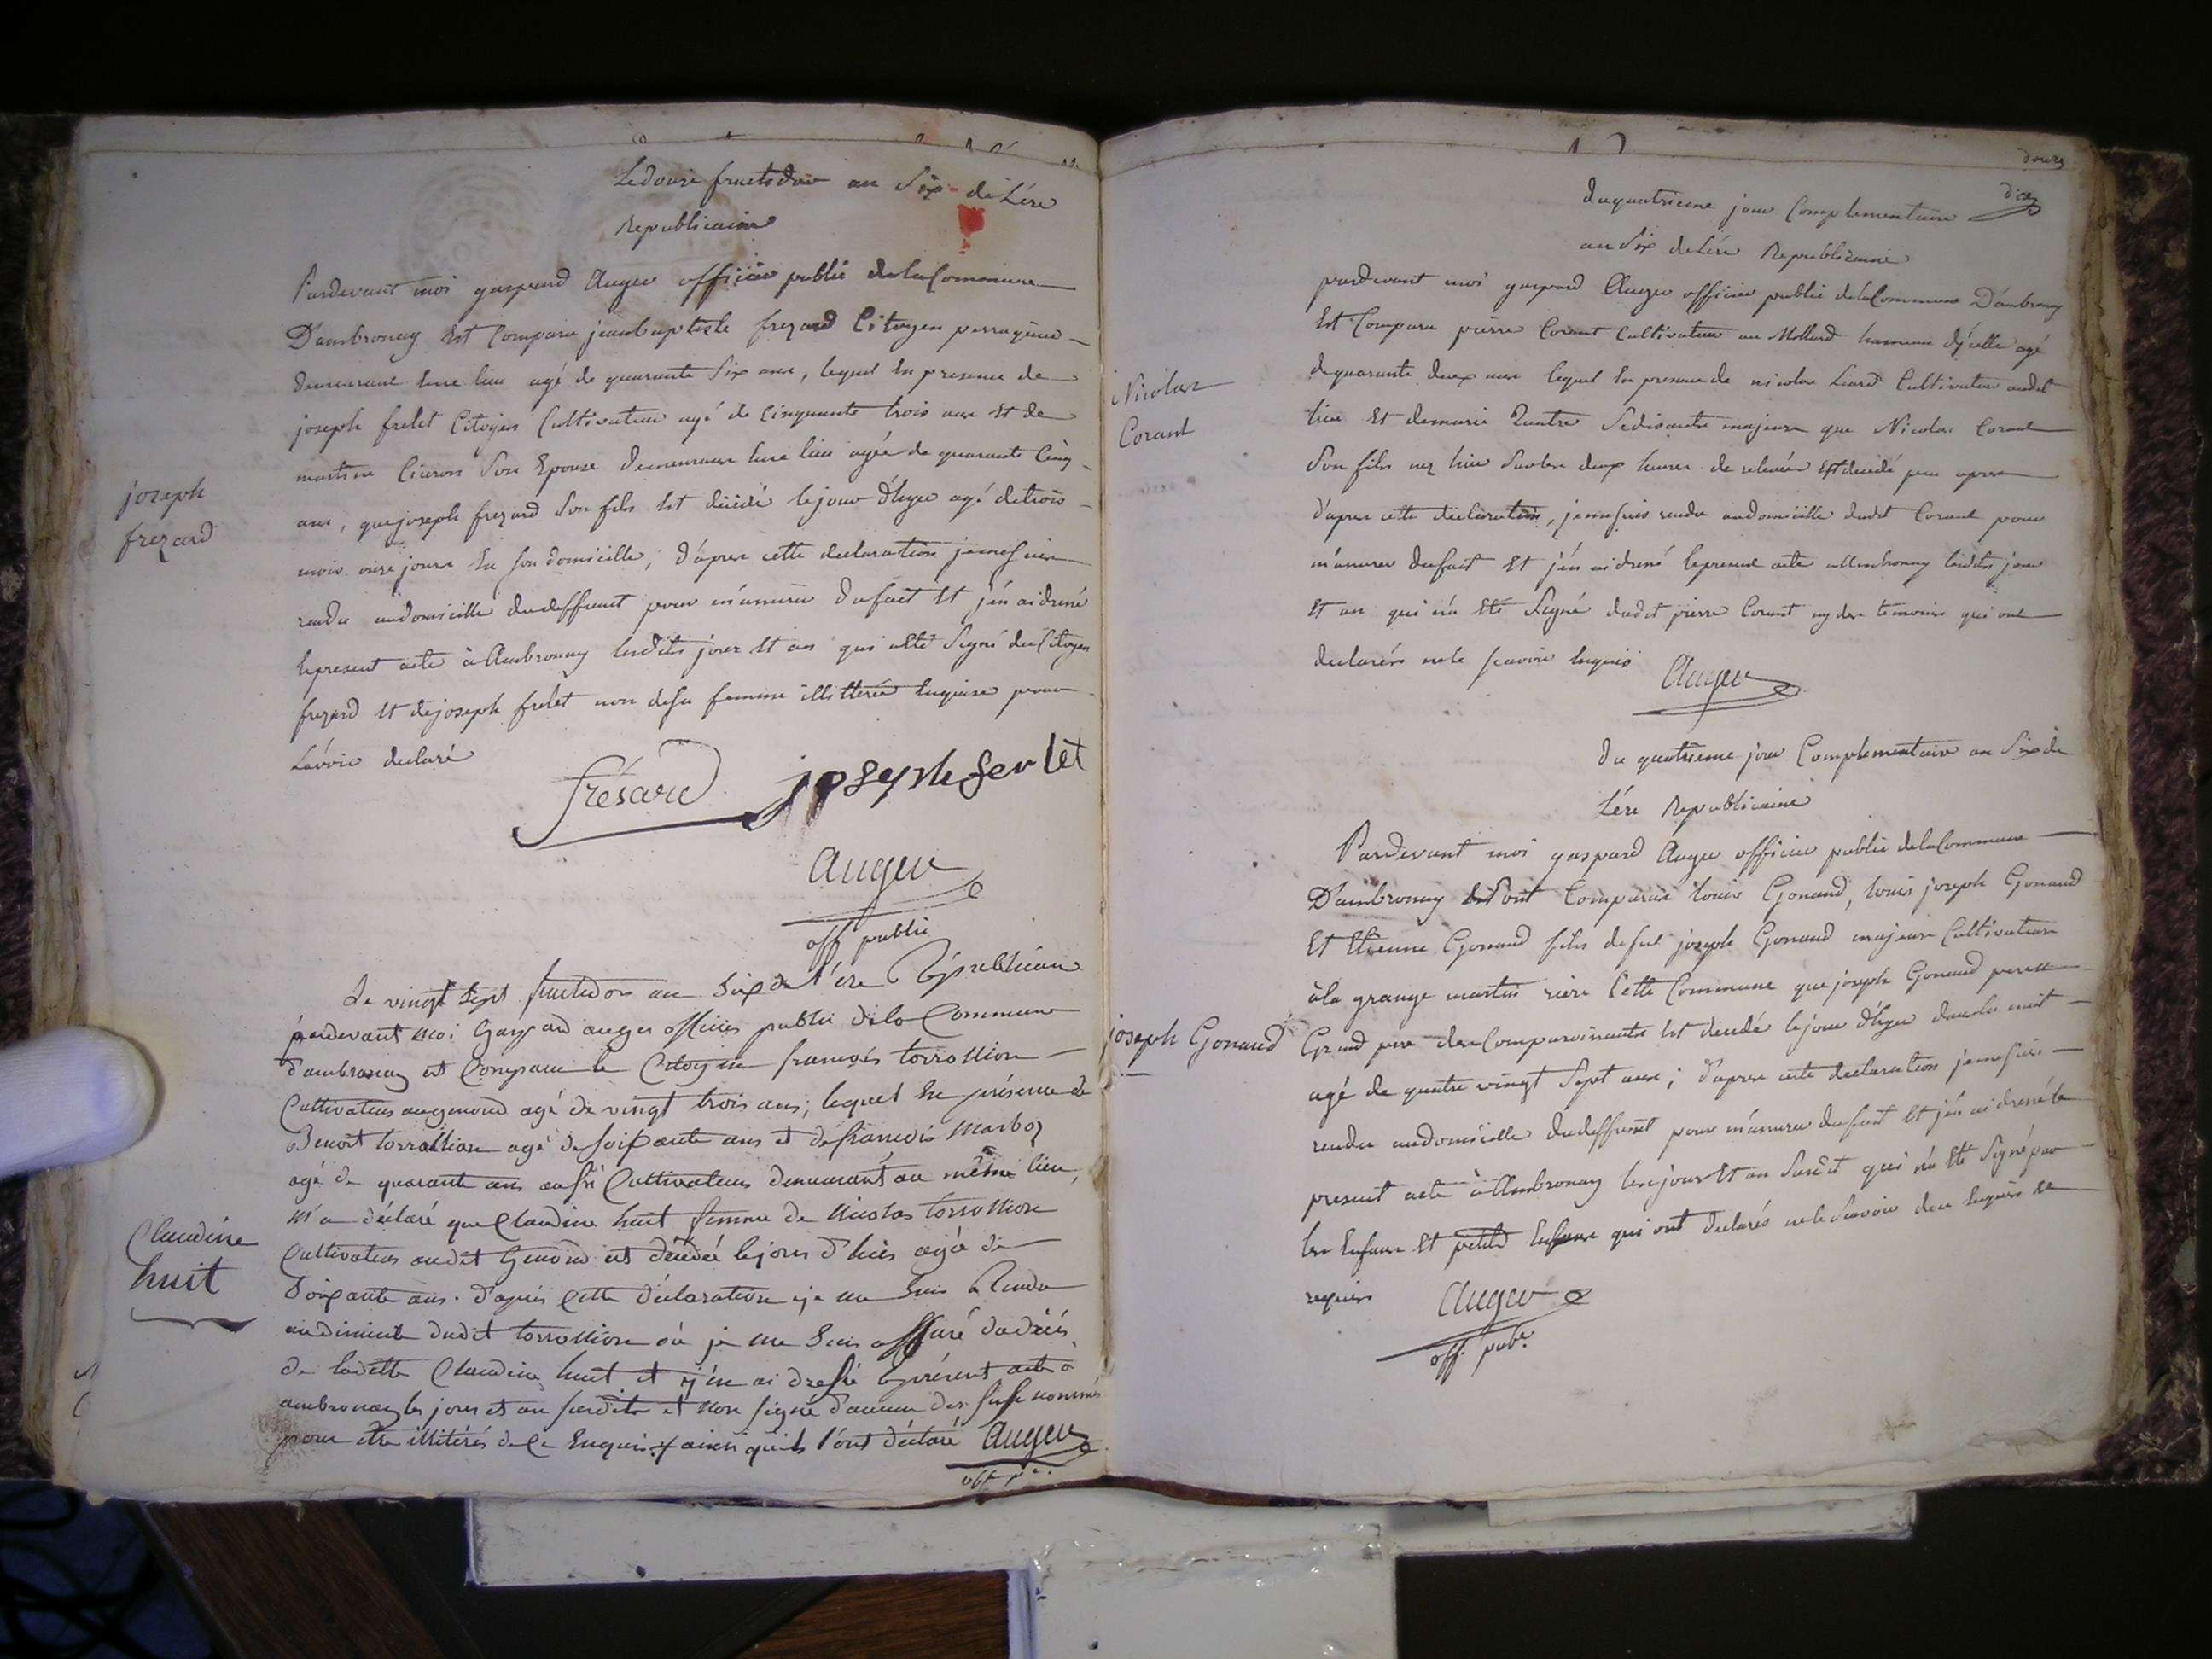 Le douze fructidor an Six de L'ére
Republicaine
joseph
frezard
Pardevant moi gaspard Auger officier public de la Commune
D'ambronay Est Comparu jeanbaptiste frezard Citoyen
demeurant susd lieu agé de quarante Six ans, lequel En presence de
joseph frelet Citoyen Cultivateur agé de Cinquante trois ans Et de
Son Epouse demeurans lieu agée de quarante Cinq
ans, que joseph frezard Son fils Est décédé le jour d'hyer agé de trois
mois onze jours En son domicille, d'apres cette declaration je me suis
rendu au domicille du deffunct pour m'assurer du fait Et j'en ai dressé
le present acte à Ambronay lesdits jour Et an qui a eté Signé du Citoyen
frezard Et de joseph frelet non de sa femme illitterée Enquise pour
L'avoir declaré
frésard joseph ferlet
Auger
off public
Claudine
huit
Le vingt Sept fructidor an Six de l'ére Républicaine
pardevant moi Gaspard auger officier public de la Commune
d'ambronay est Comparu le Citoyen françois torrollion
Cultivateur agé de vingt trois ans, lequel En présence de
Benoit torrollion agé de soixante ans et de françois Marboz
agé de quarante ans aussi Cultivateurs demeurant au même lieu,
m'a déclaré que Claudine huit femme de Nicolas torrollion
Cultivateur audit est décédée le jour d'hier agée de
Soixante ans. d'après Cette déclaration je me suis Rendu
au domicile dudit torrollion où je me suis assuré du décès
de ladite Claudine huit et j'en ai dressé le présent acte à
ambronay les jour et an susdits et non signé d'aucun des susnommés
pour etre illitérés de ce Enquis ainsi qu'ils l'ont déclaré Auger
off p.
douze
Du quatrieme jour Complementaire
an Six de L'ére Republicaine
Nicolas
Corant
pardevant moi gaspard Auger officier public de la Commune D'ambronay
Est Comparu pierre Corant Cultivateur au Mollard hameau d'ycelle agé
de quarante deux ans lequel En presence de nicolas Liard Cultivateur audit
lieu Et majeurs que Nicolas Corant
Son fils nez hier Sur les deux heures de relevée Est decédé peu apres
d'apres cette declaration, je me suis rendu au domicille dudit Corant pour
m'assurer du fait Et j'en ai dressé le present acte a Ambronay lesdits jour
Et an qui n'a Eté Signé dudit pierre Corant ny des temoins qui ont
declarés ne le scavoir Enquis
Auger
Du quatrieme jour Complementaire an Six de
L'ére Republicaine
joseph Gonand
Pardevant moi gaspard Auger officier public de la Commune
D'ambronay Sont Comparus louis Gonand, louis joseph Gonand
Et Etienne Gonand fils de feu joseph Gonand majeurs Cultivateurs
à la grange martin riere Cette Commune que joseph Gonand pere Et
Grand pere des Comparoissants Est decedé le jour d'hyer dans la nuit
agé de quatre vingt Sept ans; d'apres cette declaration je me suis
rendu au domicille du deffunct pour m'assurer du fait Et j'en ai dressé le
present acte à Ambronay les jour Et an Susdit qui n'a Eté Signé par
les Enfans Et petits Enfans qui ont declarés ne le Scavoir de ce Enquis Et
requis
Auger
off. pub.